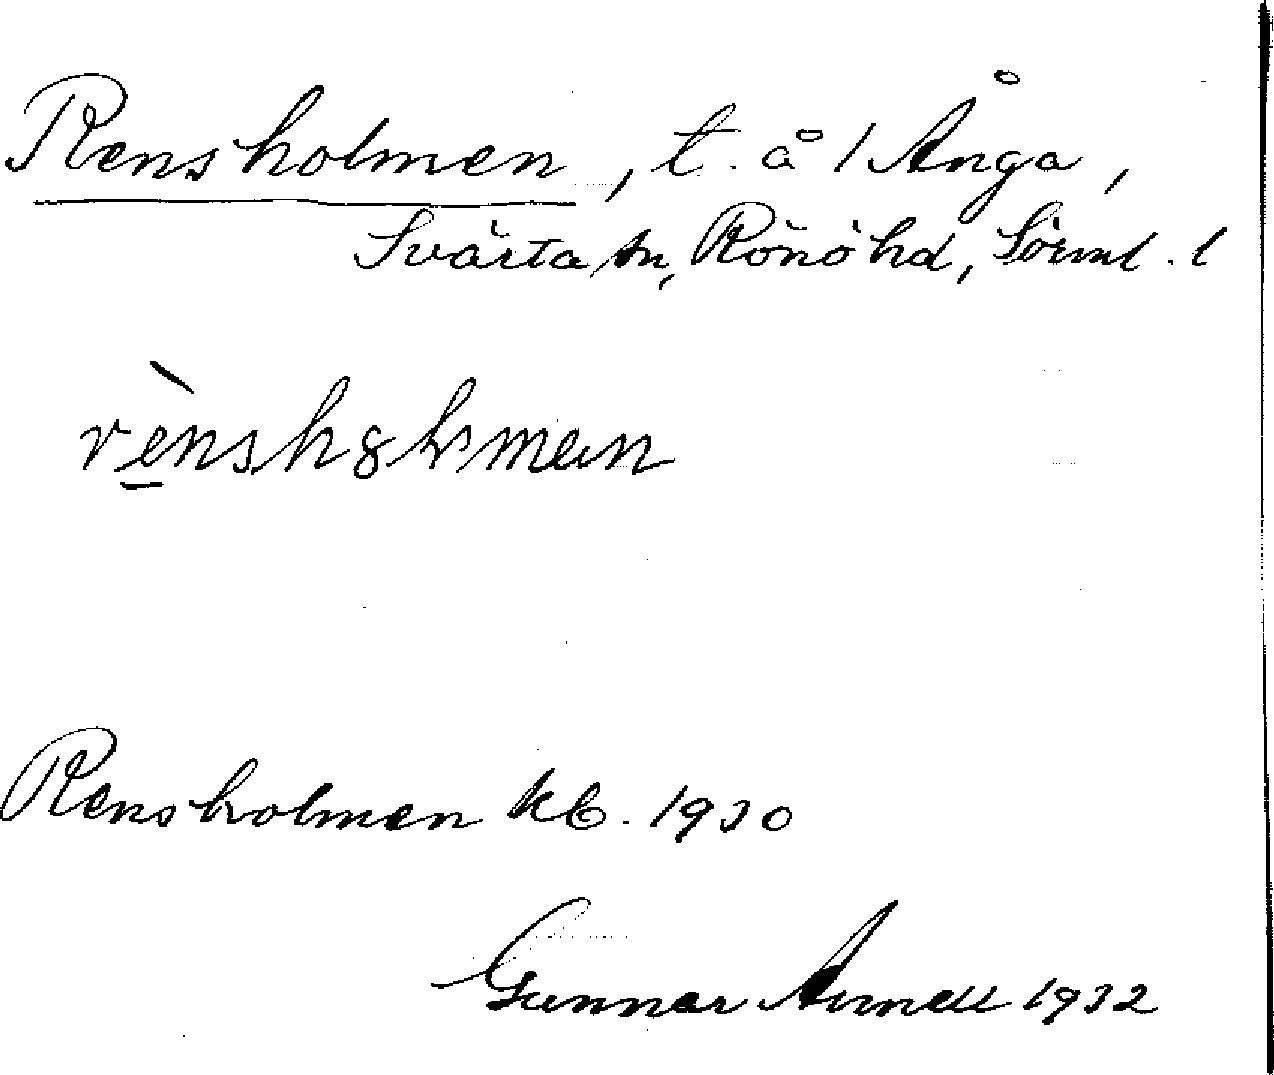 Rensholmen, t. å 1 Ånga,
Svärta sn, Rönö hd, Sörml. l
Rensholmen kb. 1930
Gunnar Arnell 1932